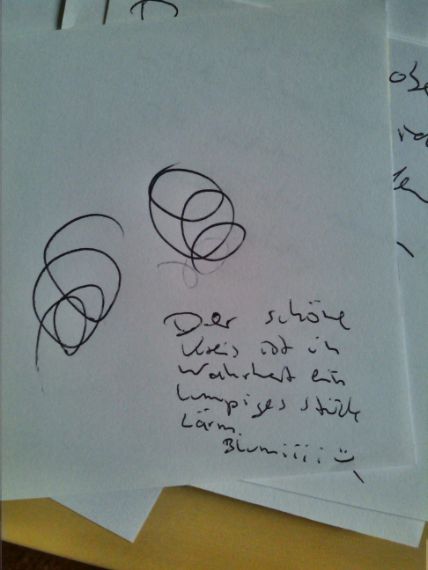 Der schöne
Kreis ist in
Wahrheit ein
lumpiges stück
Lärm.
Blumiiii
obe
den